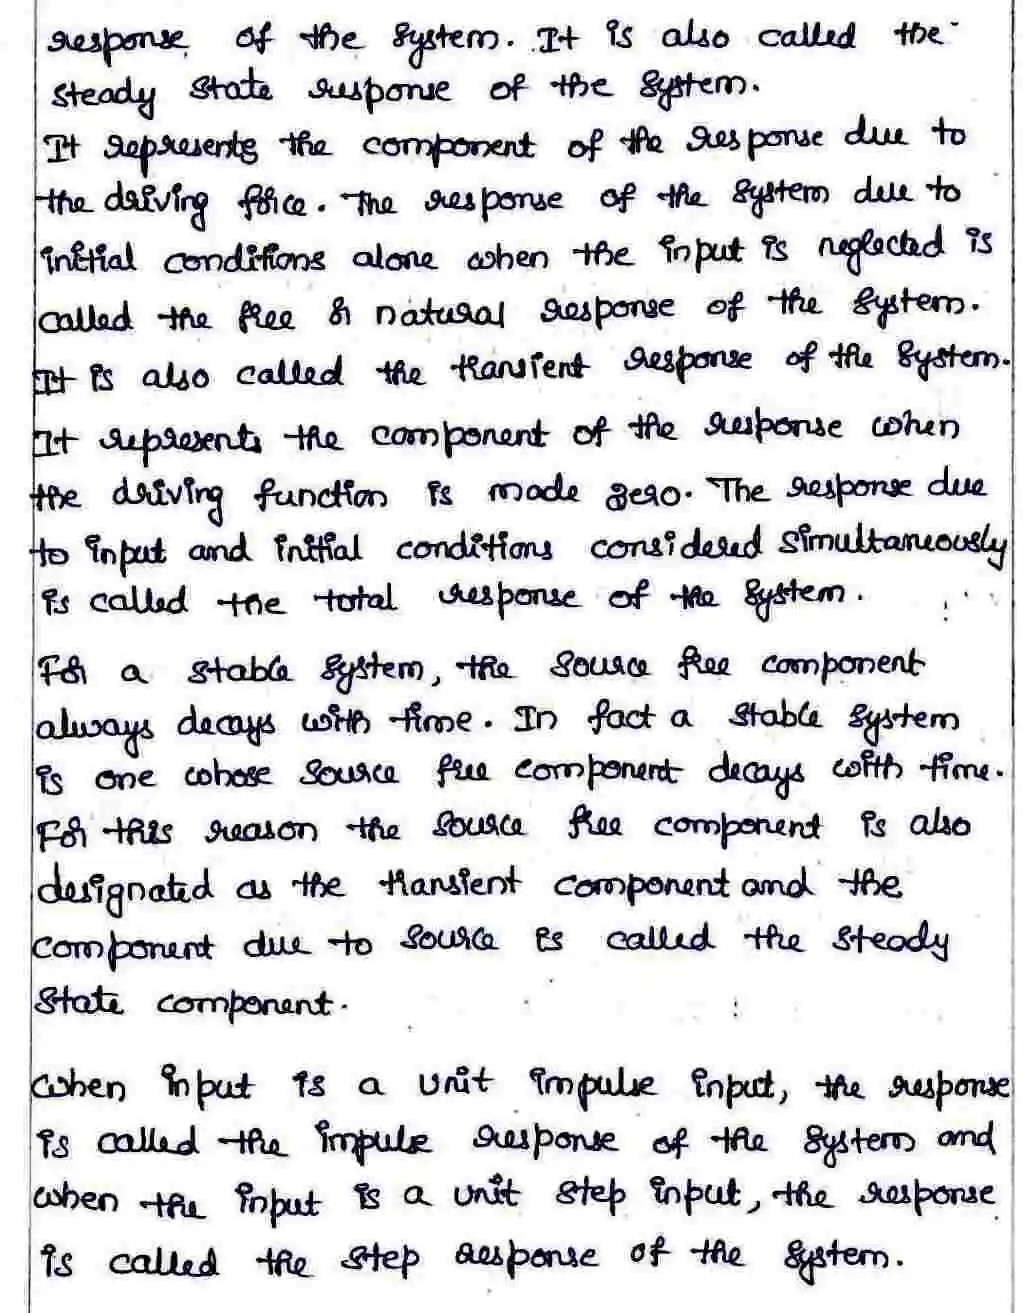 response of the system. It is also called the
steady state response of the system.
It represents the component of the response due to
the driving force. The response of the system due to
initial conditions alone when the input is neglected is
called the free or natural response of the system.
It is also called the transient response of the system.
It represents the component of the response when
the driving function is made zero. The response due
to input and initial conditions considered simultaneously
is called the total response of the system.
For a stable system, the source free component
always decays with time. In fact a stable system
is one whose source free component decays with time.
For this reason the source free component is also
designated as the transient component and the
component due to source is called the steady
state component.
when input is a unit impulse input, the response
is called the impulse response of the system and
when the input is a unit step input, the response
is called the step response of the system.